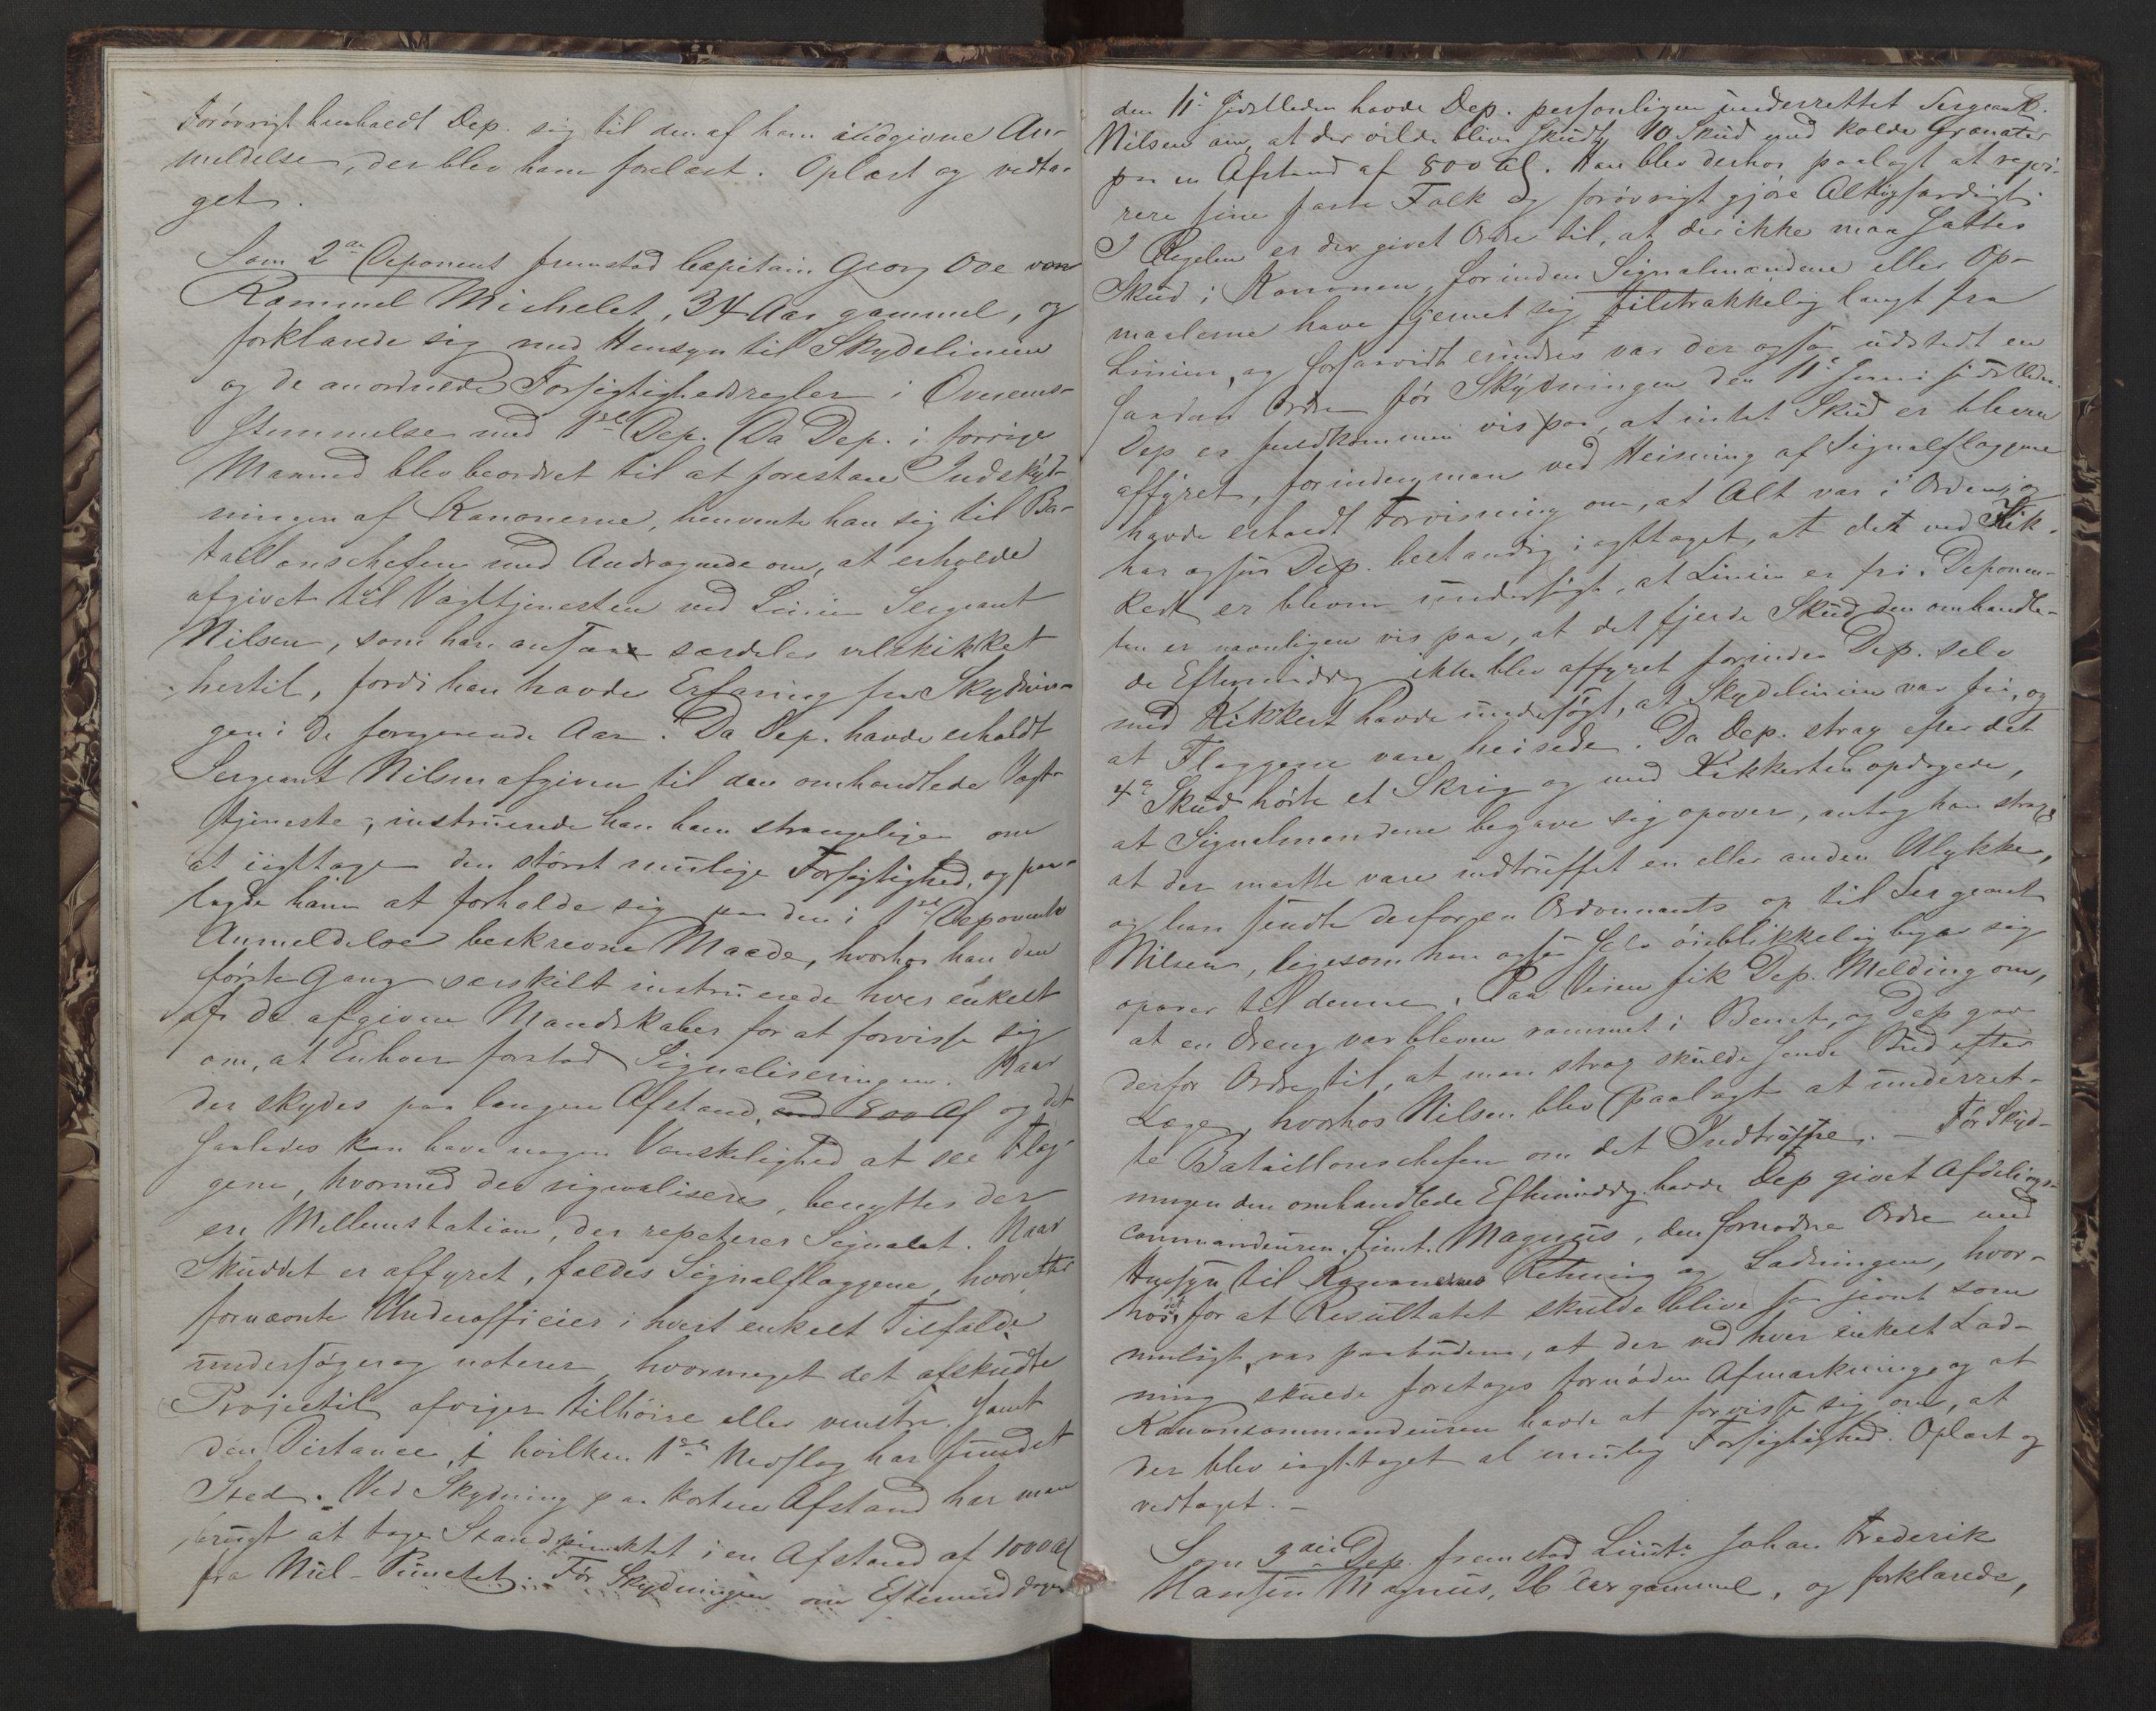 Forøvrigt henholdt Dep. sig til den af ham indgivne An-
meldelse, der blev ham forelæst. Oplæst og vedta-
get.
Som 2en Deponent fremstod Capitain Georg Ove von
Rømmel Michelet, 34 Aar gammel, og
forklarede sig med Hensyn til Skydelinien
og de anordnede Forsigtighedsregler i Overens-
stemmelse med 1ste Dep. Da Dep. i forrige
Maaned blev beordret til at forestaae Indskyd-
ningen af Kanonerne, henvendte han sig til Ba-
taillonschefen med Andragende om, at erholde
afgivet til Vagttjenesten ved Linien Sergeant
Nilsen, som han ansaae særdeles velskikket
hertil, fordi han havde Erfaring fra Skydnin-
gen i de foregaaende Aar. Da Dep. havde erholdt
Sergeant Nilsen afgiven til den omhandlede Vagt-
tjeneste, instruerede han ham strængeligen om
at iagttage den størst mulige Forsigtighed, og paa-
lagde ham at forholde sig paa den i 1ste Deponents
Anmeldelse beskrevne Maade, hvorhos han den
første Gang særskilt instruerede hver enkelt
af de afgivne Mandskaber for at forvisse sig
om, at Enhver forstod Signaliseringen. Naar
der skydes paa længere Afstand, end 800 Al og det
saaledes kan have nogen Vanskelighed at see Flag-
gene, hvormed der signaliseres, benyttes der
en Mellemstation, der repeterer Signalet. Naar
Skuddet er affyret, fældes Signalflaggene, hvorefter
fornævnte Underofficier i hvert enkelt Tilfælde
undersøger og noterer, hvormeget det afskudte
Projectil afviger tilhøire eller venstre, samt
den Distance, i hvilken 1ste Nedslag har fundet
Sted. Ved Skydning paa kortere Afstand har man
brugt at tage Standpunktet i en Afstand af 1000 Al
fra Nul-Punctet. Før Skydningen om Eftermiddagen
den 11te sidstleden havde Dep. personligen underrettet Sergeant
Nilsen om, at der vilde blive skudt 10 Skud med kolde Granater
paa en Afstand af 800 Al. Han blev derhos paalagt at
rere sine faste Folk og forøvrigt gjøre Alt færdigt.
I Regelen er der givet Ordre til, at der ikke maa sættes
Skud i Kanonen, forinden Signalmændene eller Op-
maalerne have fjernet sig tilstrækkelig langt fra
Linien, og saavidt erindres var der ogsaa udstedt en
saadan Ordre før Skydningen den 11te Juni sidstleden.
Dep er fuldkommen vis paa, at intet Skud er bleven
affyret, forinden man ved Heisning af Signalflaggene
havde erholdt Forvisning om, at Alt var i Orden, og
har ogsaa Dep. bestandig iagttaget, at det ved Kik-
kert er bleven undersøgt, at Linien er fri. Deponen-
ten er navnligen vis paa, at det fjerde Skud den omhandle-
de Eftermiddag ikke blev affyret forinden Dep. selv
med Kikkert havde undersøgt, at Skydelinien var fri, og
at Flaggene vare heisede. Da Dep. strax efter det
4de Skud hørte et Skrig og med Kikkerten opdagede,
at Signalmændene begave sig opover, antog han strax,
at der maatte være indtruffet en eller anden Ulykke,
og han sendte derfor en Ordonnants op til Sergeant
Nilsen, ligesom han ogsaa selv øieblikkelig begav sig
opover til denne. Paa Veien fik Dep. Melding om,
at en Dreng var bleven rammet i Benet, og Dep gav
derfor Ordre til, at man strax skulde sende Bud efter
Læge, hvorhos Nilsen blev paalagt at underret-
te Bataillonschefen om det Indtrufne. – Før Skyd-
ningen den omhandlede Eftermiddag havde Dep givet Afdelings-
commandeuren, Lieut. Magnus, den fornødne Ordre med
Hensyn til Kanonernes Retning og Ladningen, hvor-
hos, for at Resultatet skulde blive saa jevnt som
muligt, var paabudne, at der ved hver enkelt Lad-
ning skulde foretages fornøden Afmærkning, og at
Kanoncommandeuren havde at forvisse sig om, at
der blev iagttaget al mulig Forsigtighed. Oplæst og
vedtaget. –
Som 3die Dep. fremstod Lieut. Johan Frederik
Hansen Magnus, 26 Aar gammel, og forklarede,